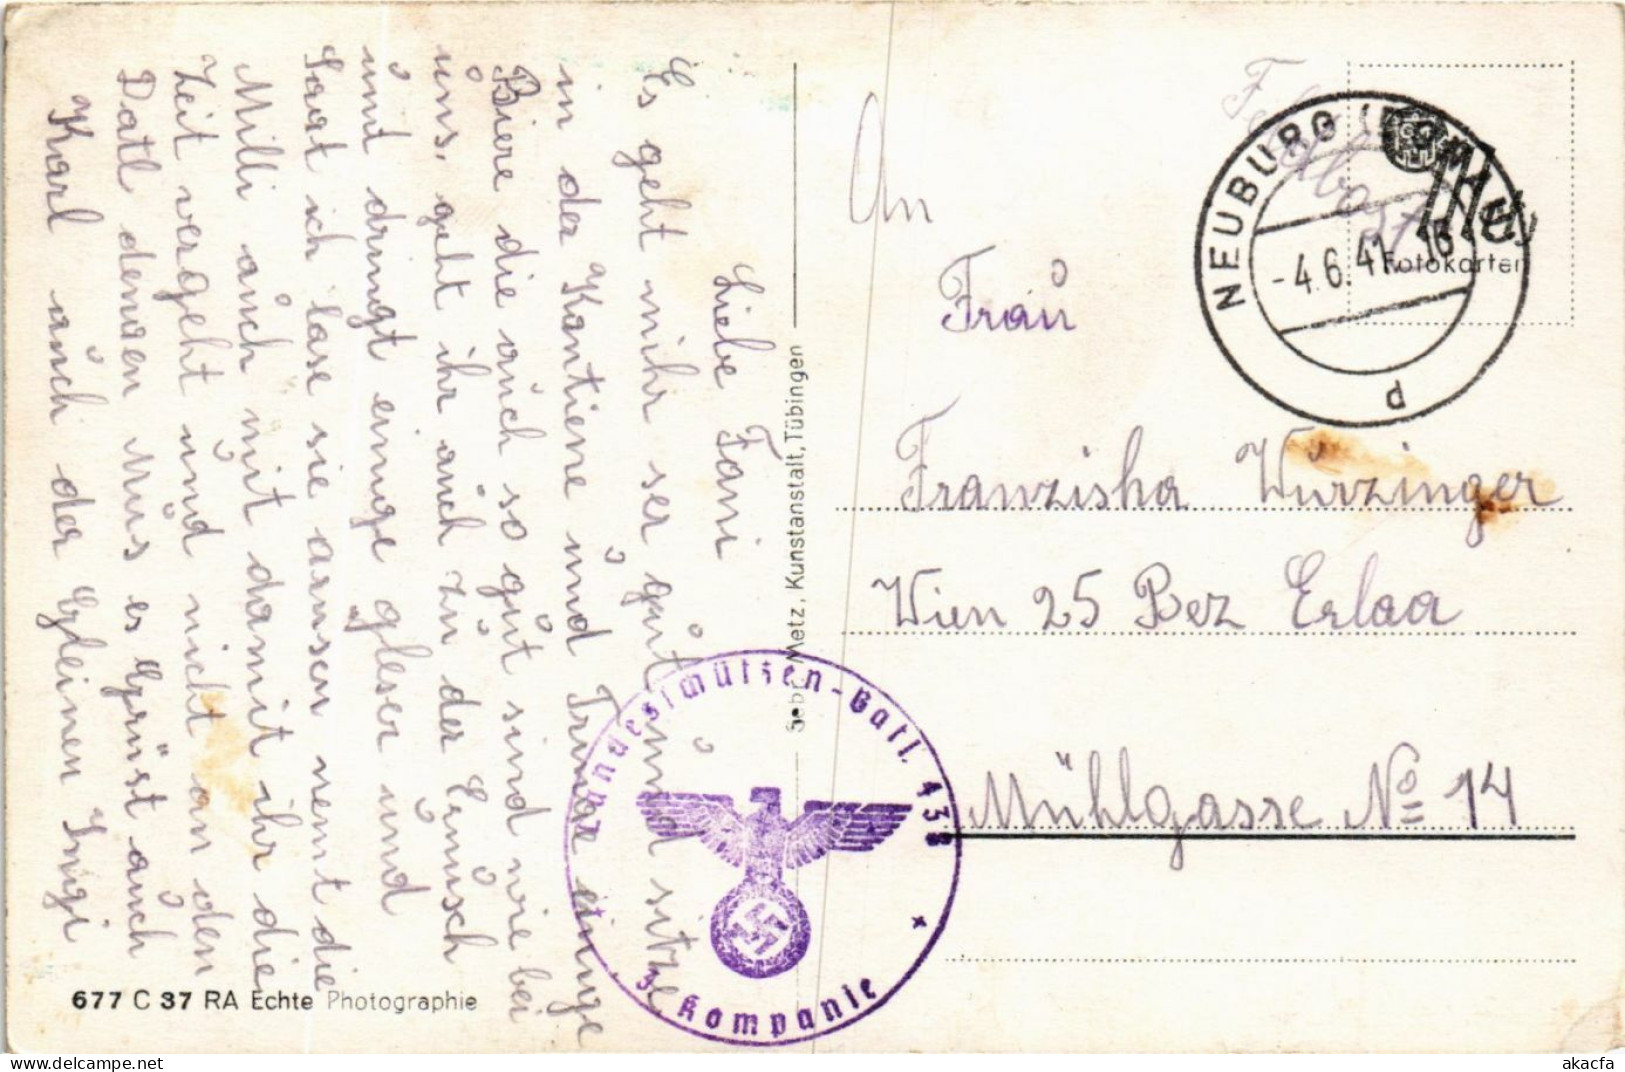 Liebe Fani
Es geht mihr ser gut und sitze
in der Kantiene und Trinke einige
Biere die auch so gut sind wie bei
uns, geht ihr auch zu der
und dringt einige gleser und
Sart ich lase sie nemt die
Milli auch mit damit ihr die
Zeit vergeht und nicht an den
Datl dengen Mus es Grüst auch
Karl auch der Gleinen Ingi
677 C 37 RA Echte Photographie
Metz, Kunstanstalt, Tübingen
Landesschützen-Batl. 438
3. Kompanie
Feldpost
NEUBURG (DONAU)
-4.6.41.-16
d
Fotokarten
An
Frau
Franziska Wurzinger
Wien 25 Bez Erlaa
Mühlgasse No 14
akacfa
www.delcampe.net